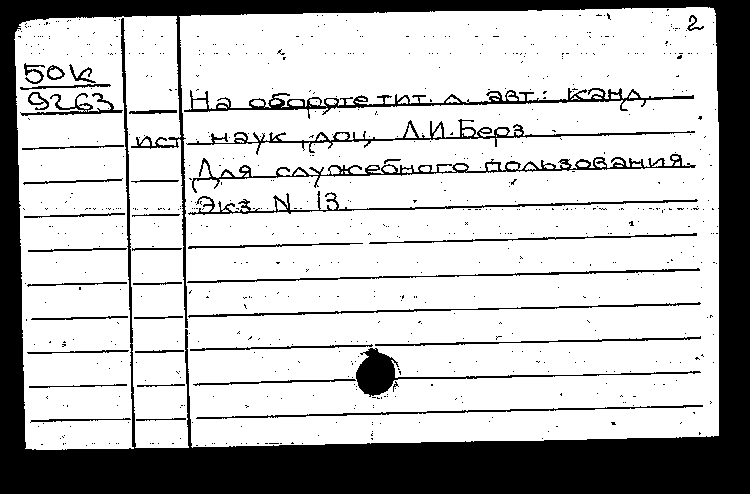 2
50К
9263
На обороте тит. л. авт.: канд.
ист. наук, доц. Л.И.Берз
Для служебного пользования.
Экз. N 13.